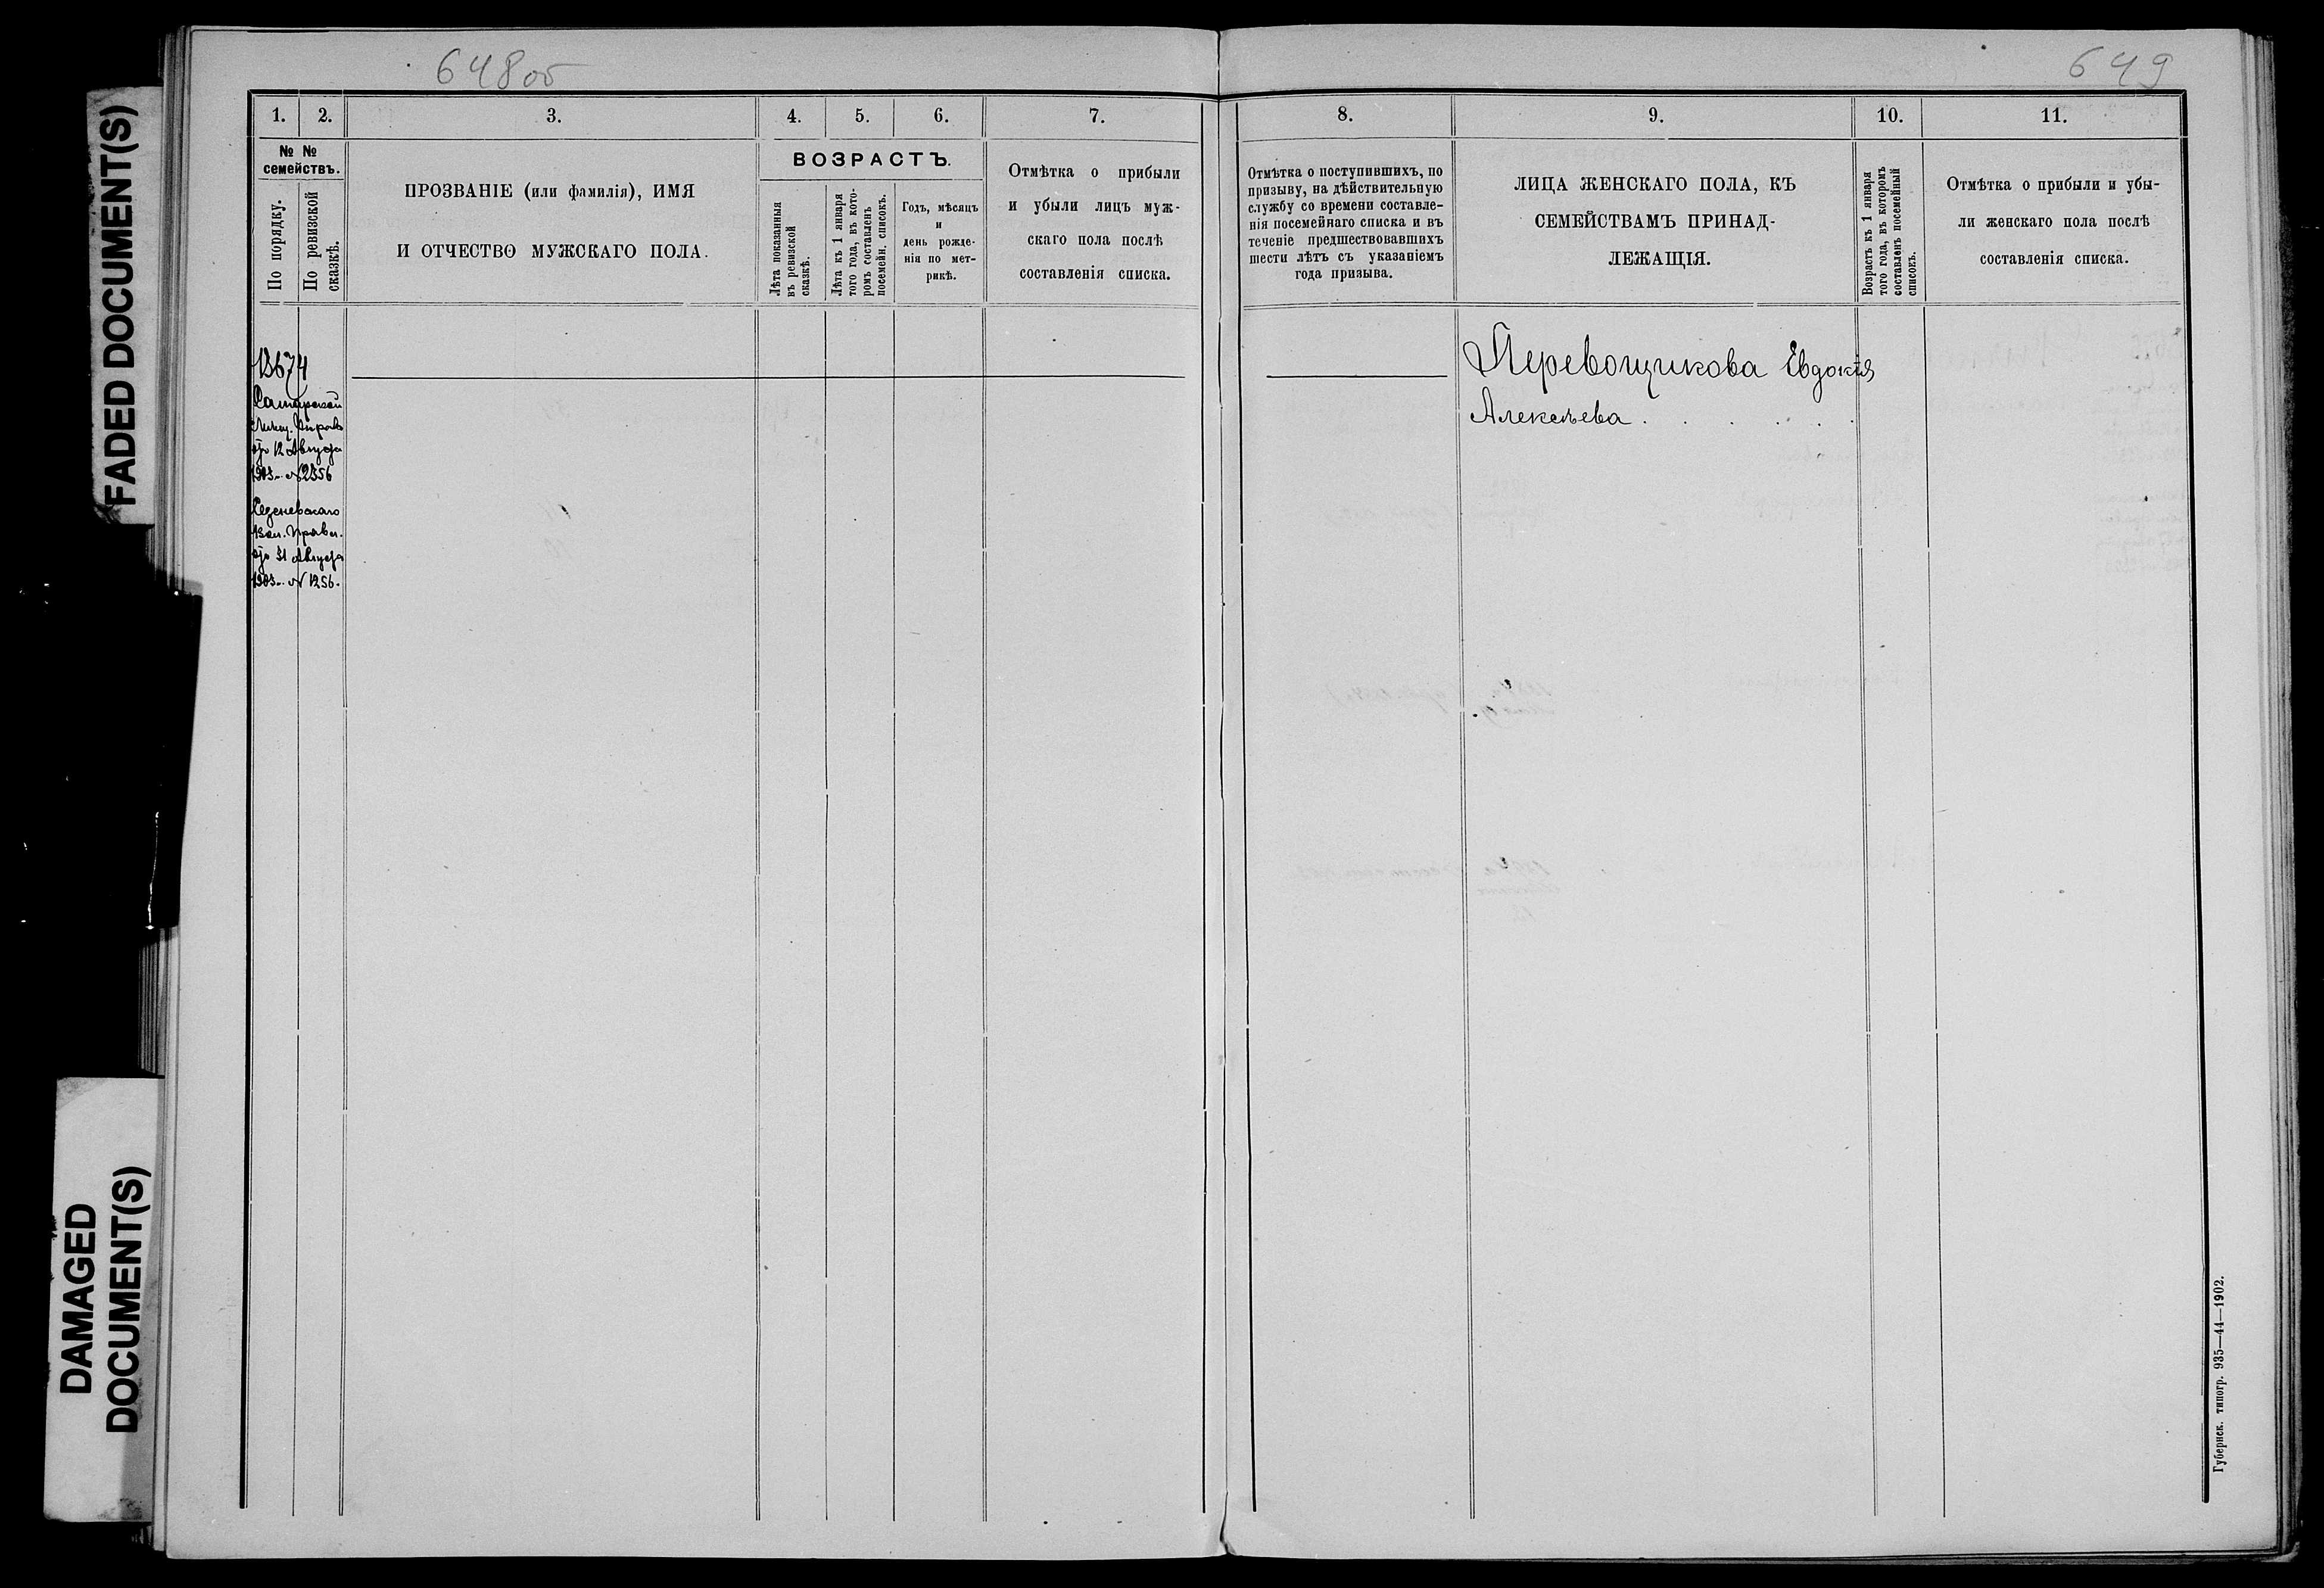 FADED DOCUMENT(S)
DAMAGED
DOCUMENT(S)
648 об
1.
2.
3.
4.
5.
6.
7.
№ №
семействъ.
По порядку.
По ревизской
сказкѣ.
ПРОЗВАНІЕ (или фамилія), ИМЯ
И ОТЧЕСТВО МУЖСКАГО ПОЛА.
ВОЗРАСТЪ.
Лѣта показанныя
въ ревизской
сказкѣ.
Лѣта къ 1 января
того года, въ кото-
ромъ составленъ
посемейн. списокъ.
Годъ, мѣсяцъ
и
день рожде-
нія по мет-
рикѣ.
Отмѣтка о прибыли
и убыли лицъ муж-
скаго пола послѣ
составленія списка.
13674
Самарской
12 Августа
1903 № 2356
Вол. Правл.
31 Августа
1903 № 1256.
649
8.
9.
10.
11.
Отмѣтка о поступившихъ, по
призыву, на дѣйствительную
службу со времени составле-
нія посемейнаго списка и въ
теченіе предшествовавшихъ
шести лѣтъ съ указаніемъ
года призыва.
ЛИЦА ЖЕНСКАГО ПОЛА, КЪ
СЕМЕЙСТВАМЪ ПРИНАД-
ЛЕЖАЩІЯ.
Возрастъ къ 1 января
того года, въ которомъ
составленъ посемейный
списокъ.
Отмѣтка о прибыли и убы-
ли женскаго пола послѣ
составленія списка.
Перевощикова Евдокія
Алексѣева . . . . . .
Губернск. типогр. 935—44—1902.